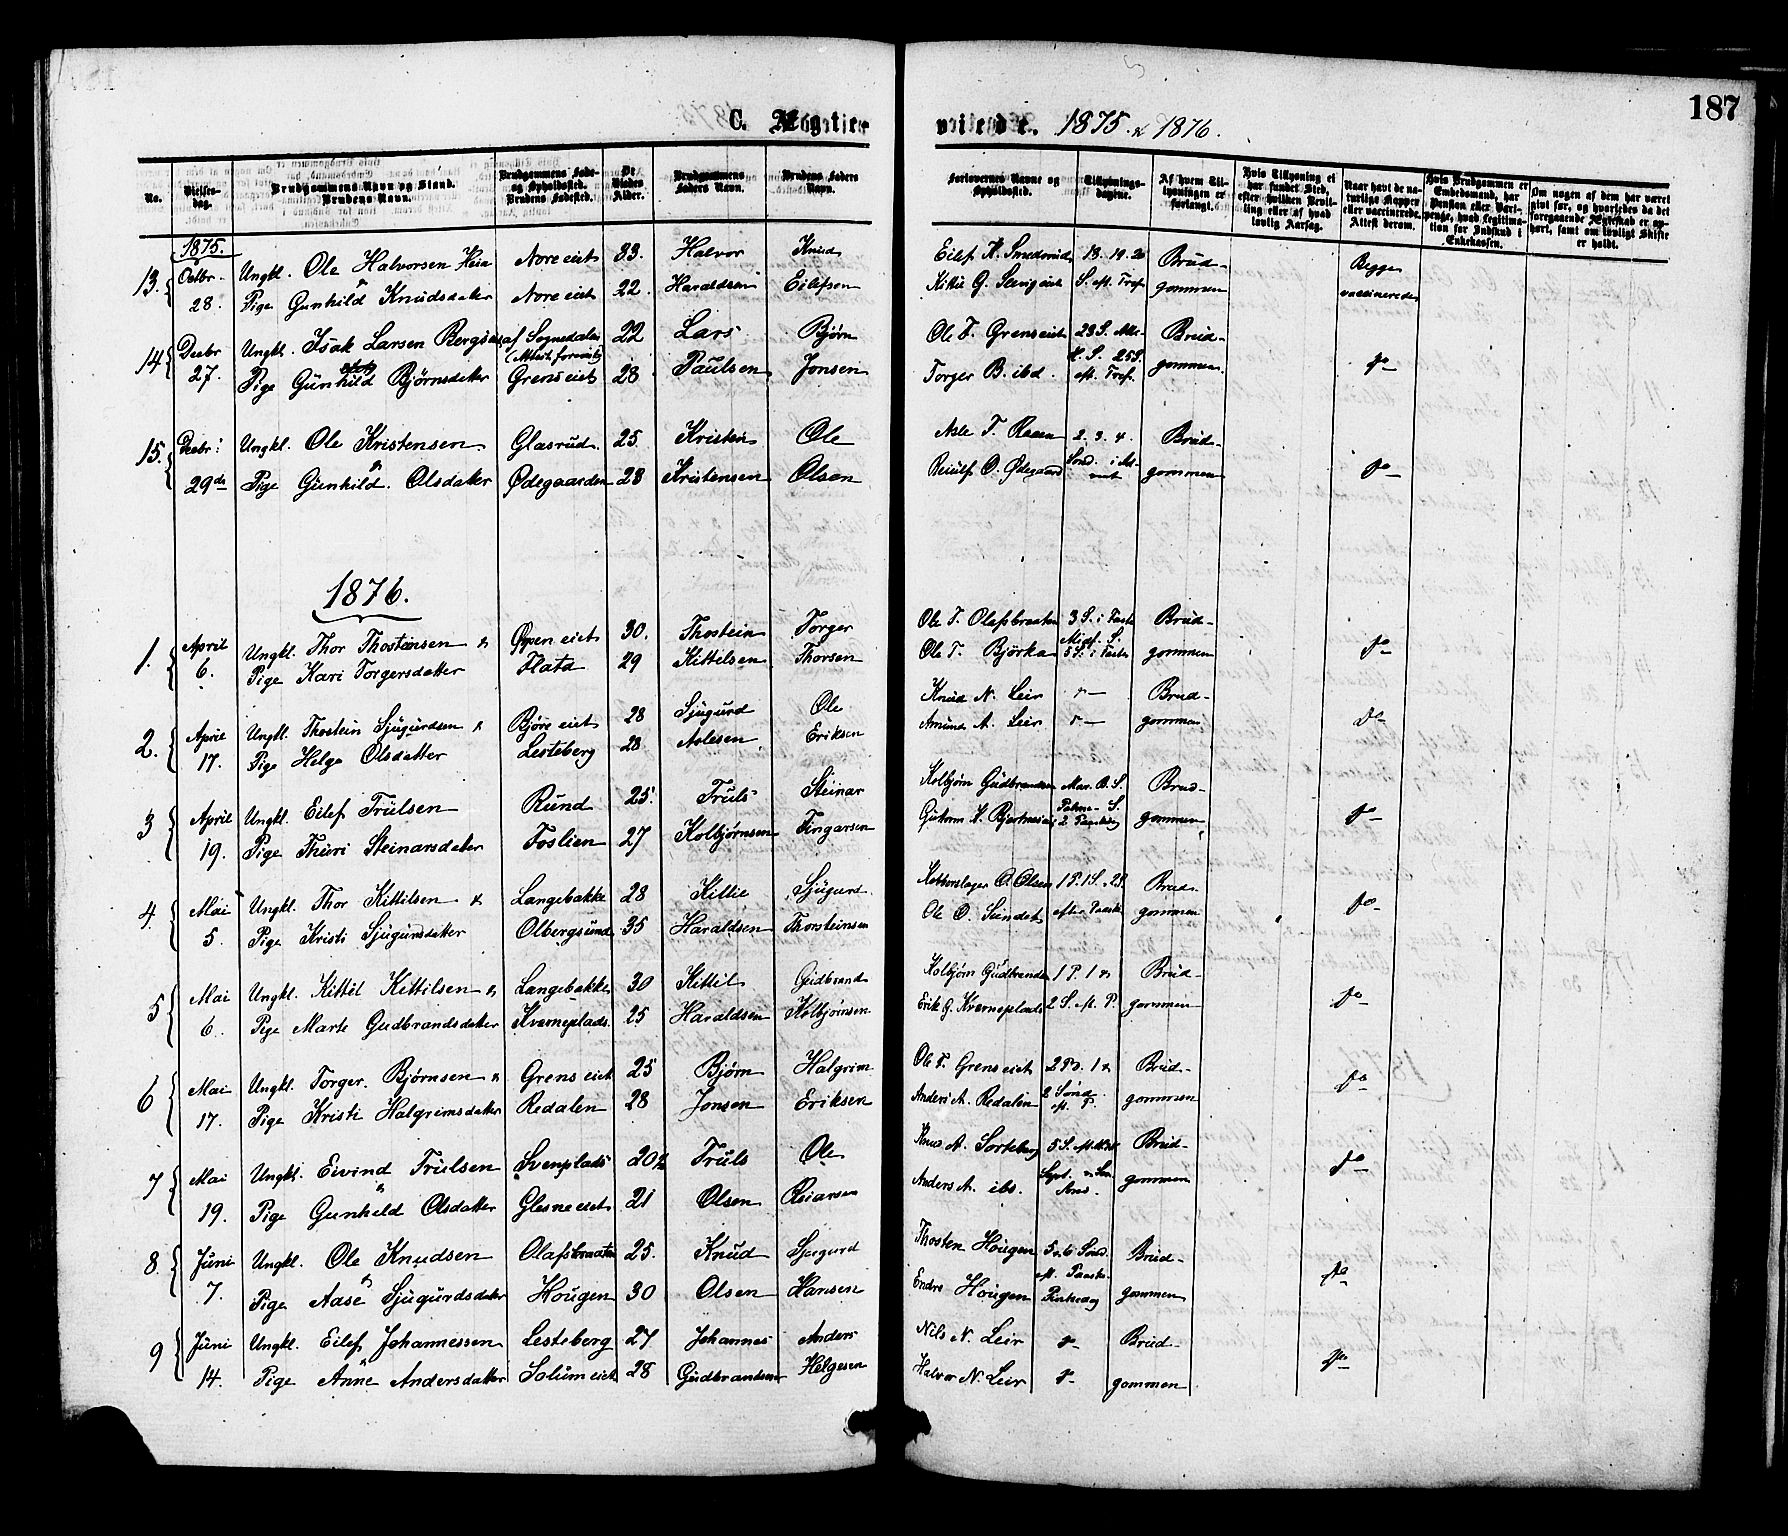 187
C. Ægtevi­ede. 1875 & 1876.
No. Vielsesdag. Brudgommens Navn og Stand. Brudens Navn. Brudgommens Føde- og Opholdssted. Brudens Fødested. De Viedes Alder. Brudgommens Faders Navn. Brudens Faders Navn. Forlovernes Navne og Opholdssted. Tillysningsdagene. Af hvem Tillysningen er forlangt. Hvis Tillysning ei har fundet Sted, efter hvilken Bevilling eller af hvad lovlig Aarsag. Naar havt de naturlige Kopper eller vaccinerede. Attest derom. Hvis Brudgommen er Embedsmand, har Pension eller Vartpenge, hvad Legitimation for Indskud i Enkekassen. Om nogen af dem har været givt før, og hvorledes da det foregaaende Ægteskab er ophørt, samt om lovligt Skifte er holdt.
1875.
13. Octbr Ungkl. Ole Halvorsen Heia Nore eiet 33. Halvor Knud Eilef H. Smedsrud 18. 19. 20 Brud-
28. Pige Gunhild Knudsdatter Nore eiet 22. Haraldsen Eilefsen Kittil G. S. eft. Tref. gommen Begge vaccinerede
14 Decbr Ungkl. Isak Larsen af Sognedalen 22 Lars Bjørn Ole T. Grenseiet 23 S. Brud-
27. Pige Gunhild Bjørnsdatter Grenseiet 28 Paulsen Jonsen Torger B. ibd. 25 S. eft. Tref. gommen. do
15. Decbr. Ungkl. Ole Kristensen Glasrud 25. Kristen Ole Asle T. Raaen 2. 3. 4. Brud-
29de Pige Gunhild Olsdatter Ødegaarden 28 Kristensen Olsen O. Ødegaard Sønd. i Advent gommen do
1876.
1. April Ungkl. Thor Thostensen & Øpen eiet 30. Thostein Torger Ole T. Olafsbraaten 3 S. i Faste Brud-
6. Pige Kari Torgersdatter Flata 29 Kittilsen Thorsen Ole T. Bjørka Midf. S. 5 S. i Faste gommen do
2. April Ungkl. Thostein Sjugurdsen & Bjøre eiet 28 Sjugurd Ole Knud N. Leir Brud-
17. Pige Helge Olsdatter Lesteberg 28 Aslesen Eriksen Amund A. Leir gommen do
3 April Ungkl. Eilef Trulsen Rund 25. Truls Steinar Kolbjørn Gudbrandsen Mar. B. S. Brud-
19. Pige Thuri Steinarsdatter Foslien 27 Kolbjørnsen Fingarsen Guttorm H. Palme-S. 2 Paaskdag gommen do
4. Mai Ungkl. Thor Kittilsen & Langebakke 28 Kittil Sjugurd O. Olsen 1 P. 1 S. 2 S. Brud-
5. Pige Kristi Sjugursdatter Olbergsund 35 Haraldsen Thorsteinsen Ole O. Sundet efter Paaske gommen do
5 Mai Ungkl. Kittil Kittilsen & Langebakke 30 Kittil Gudbrand Kolbjørn Gudbrandsen 1 P. 1 & Brud-
6. Pige Marte Gudbrandsdatter Kverneplads. 25 Haraldsen Kolbjørnsen Erik G. Kverneplads 2 S. eft. P. gommen do
6 Mai Ungkl. Torger Bjørnsen & Grens eiet 25 Bjørn Halgrim Ole T. Grenseiet 2 P. 1 & Brud-
17. Pige Kristi Halgrimsdatter Redalen 28 Jonsen Eriksen Anders A. Redalen 2 Sønd. eft. P. gommen do
7 Mai Ungkl. Eivind Trulsen Svenplads 20½ Truls Ole Knud A. Sorteberg 5 S. Brud-
19. Pige Gunhild Olsdatter Glesne eiet 21 Olsen Reiarsen Anders A. ibd. gommen do
8. Juni Ungkl. Ole Knudsen Olafsbraaten 25. Knud Sjugurd Thosten Hougen 5 & 6 Sønd. Brud-
7. Pige Aase Sjugurdsdatter Hougen 30 Olsen Hansen Endre Hougen eft. Paaske Pintsedag gommen do
9 Juni Ungkl. Eilef Johannessen Lesteberg 27 Johannes Anders Nils N. Leir Brud-
14. Pige Anne Andersdatter Solum eiet 28 Gudbrandsen Helgesen Halvor N. Leir gommen do